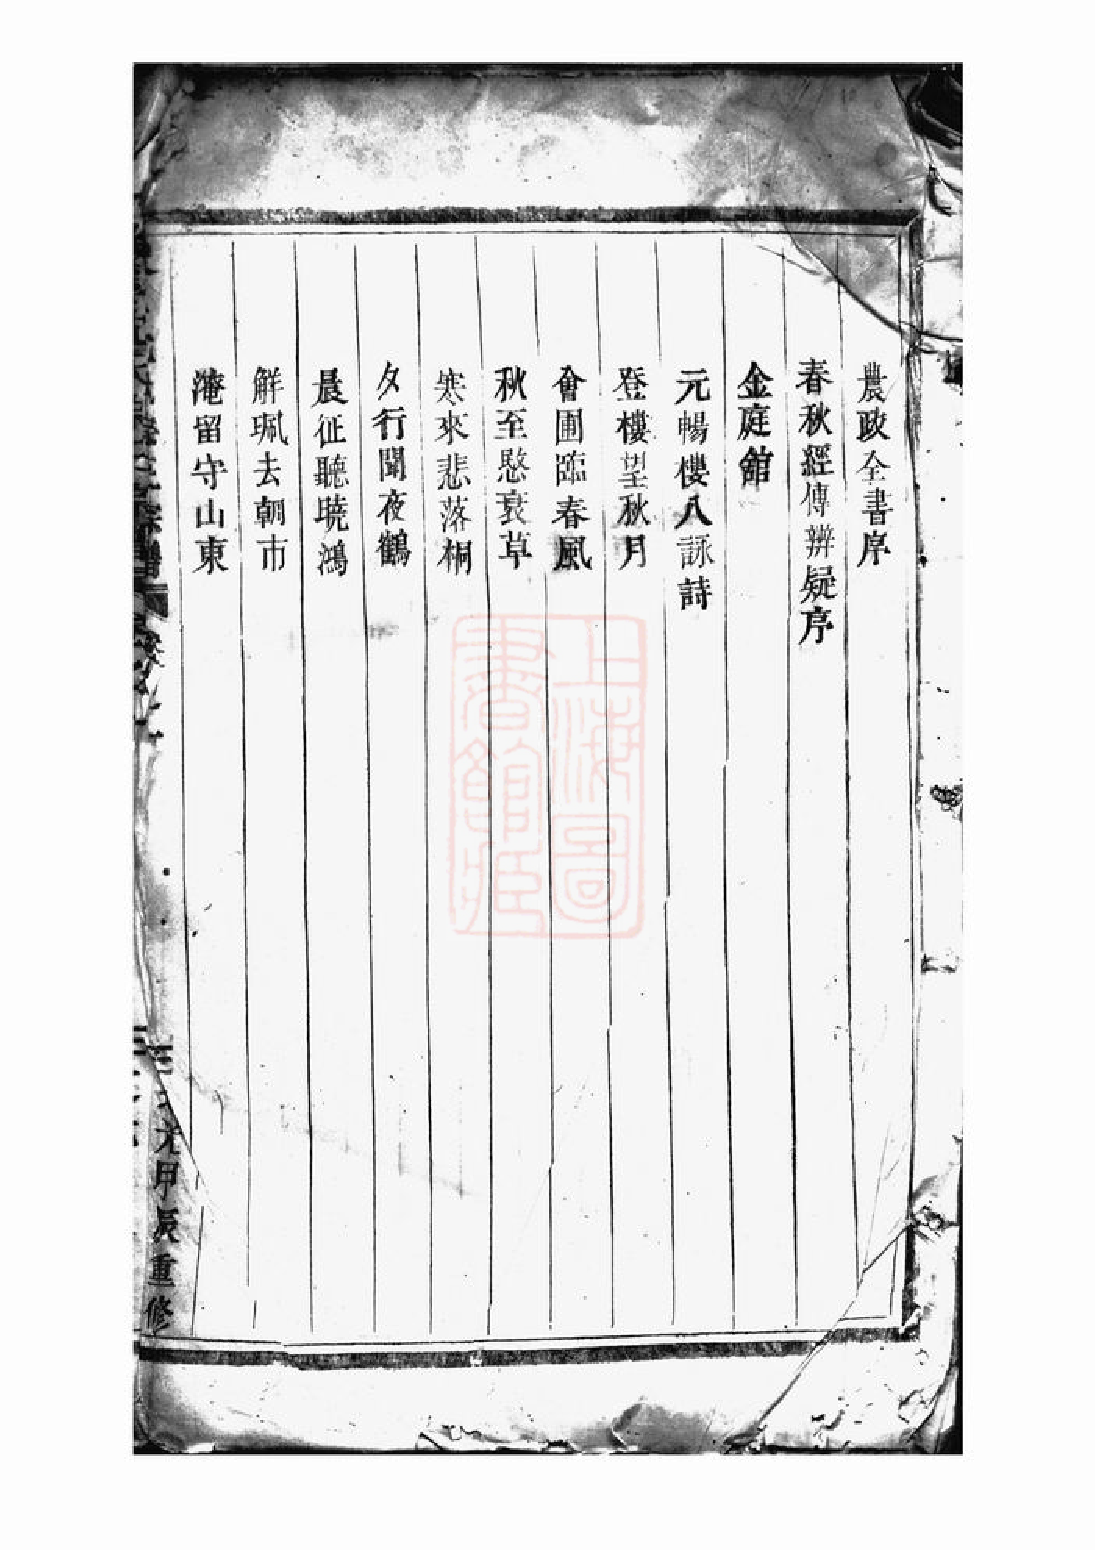 農政全書序
春秋經傳辨疑序
金庭館
元暢樓八詠詩
登樓望秋月
會圃臨春風
秋至愍衰草
寒來悲落桐
夕行聞夜鶴
晨征聽曉鴻
解珮去朝市
淹留守山東
光甲辰重修
上海圖
書館藏